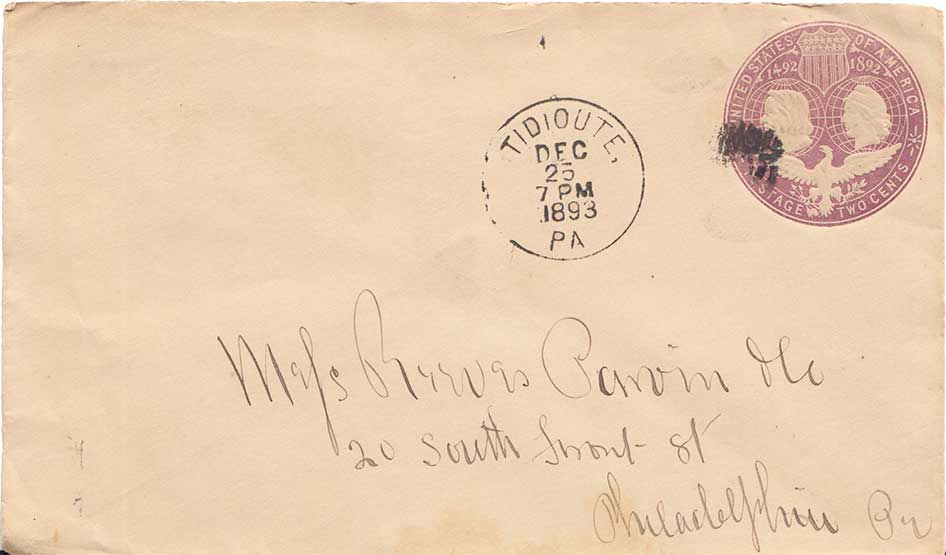 UNITED STATES OF AMERICA
1492 1892
POSTAGE TWO CENTS
TIDIOUTE,
DEC
25
7 PM
1893
PA
Mess Reeves Parvin & Co
20 South Front St
Philadelphia Pa